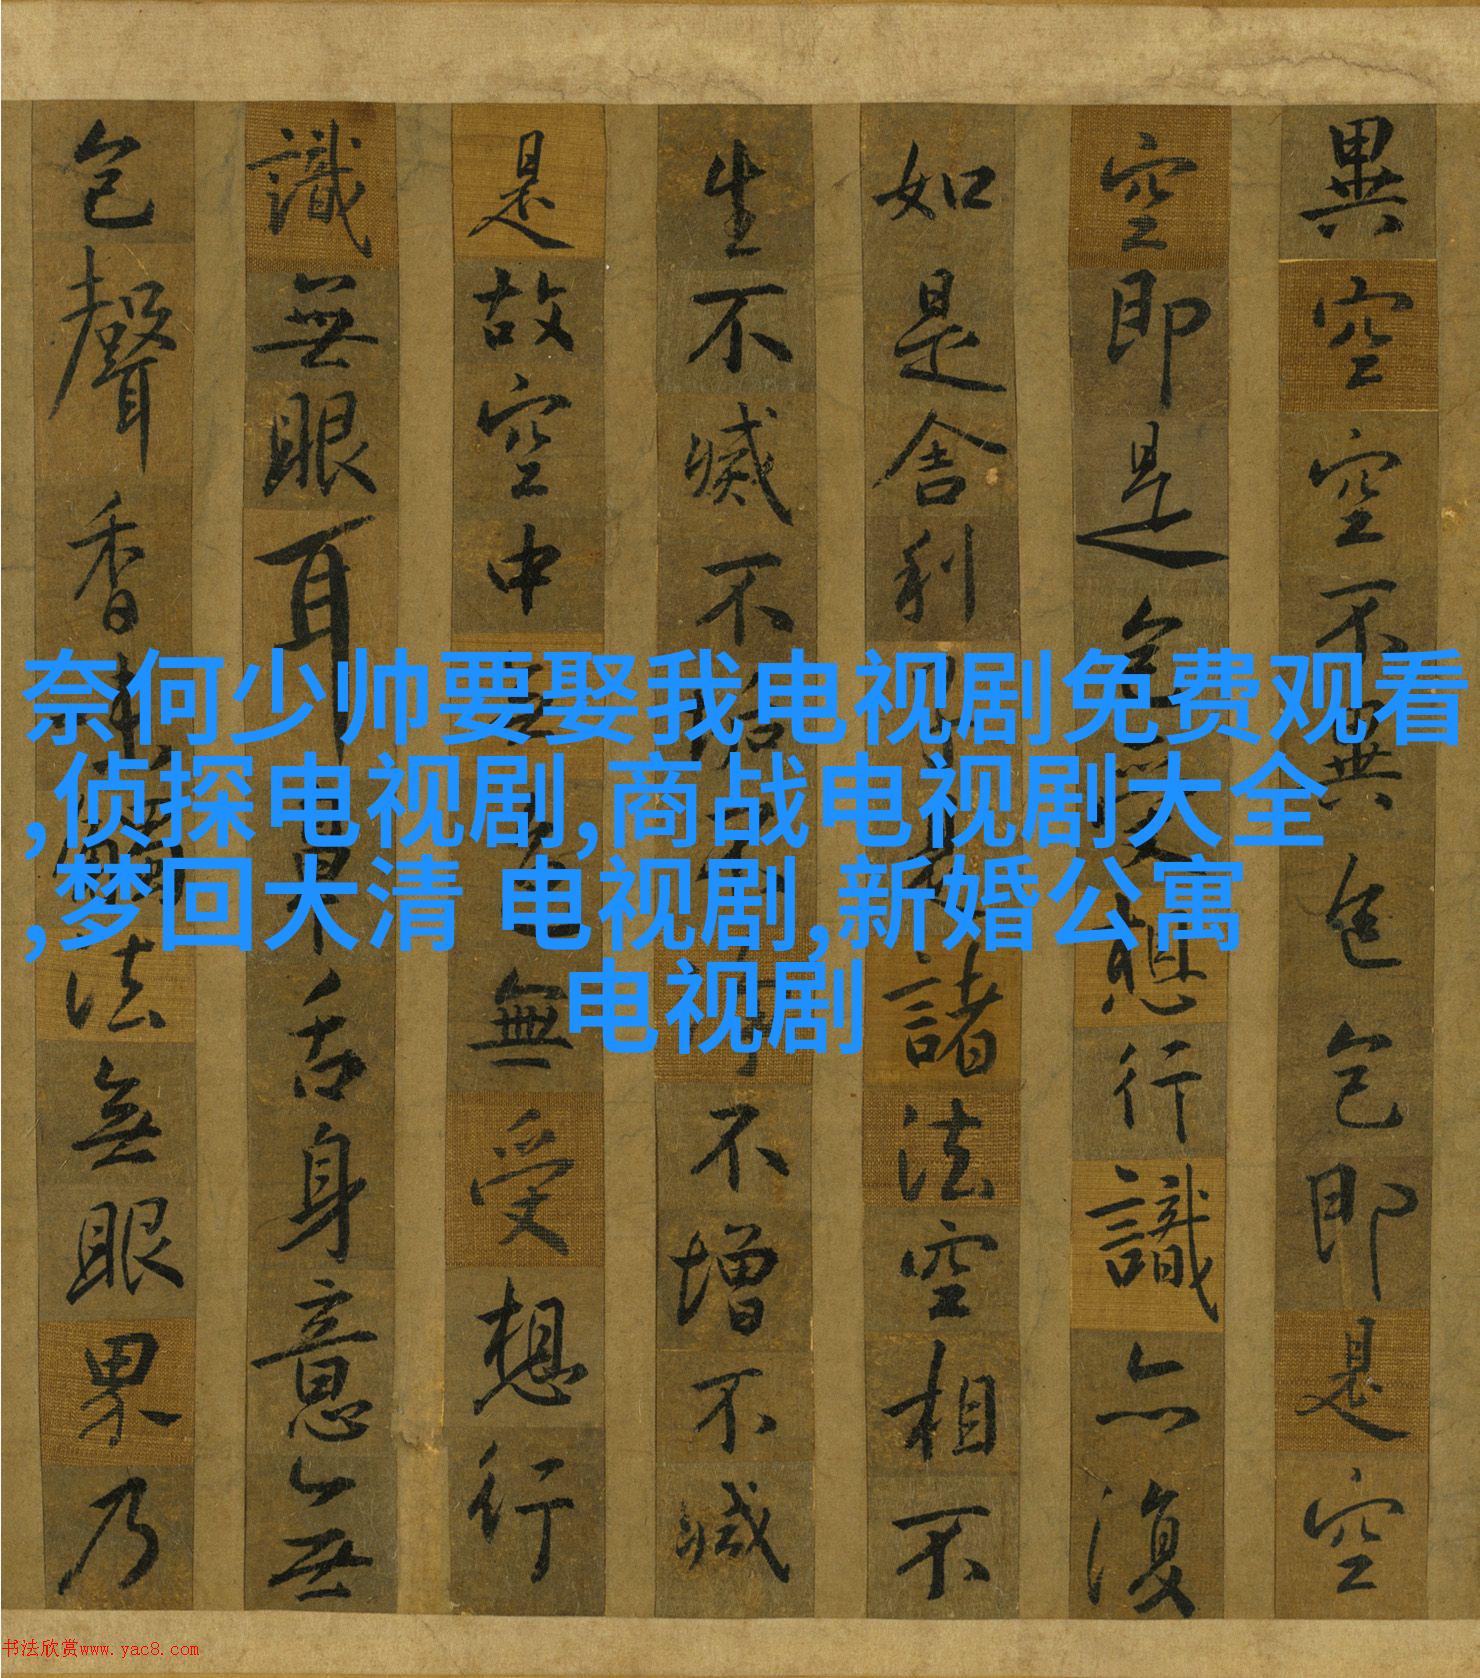 異空空不異色色即是空
空即是色受想行識亦復
如是舍利子是諸法空相不
生不滅不垢不淨不增不減
是故空中無色無受想行
識無眼耳鼻舌身意無
色聲香味觸法無眼界乃
奈何少帅要娶我电视剧免费观看
,侦探电视剧,商战电视剧大全
,梦回大清 电视剧,新婚公寓
电视剧
书法欣赏www.yac8.com